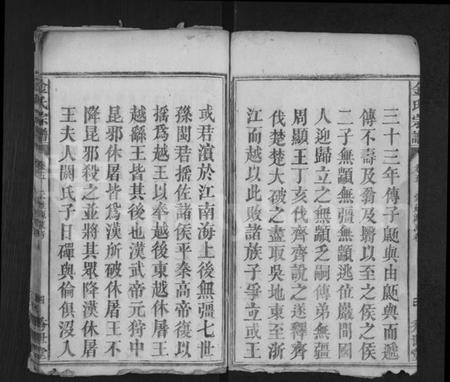 三十三年傳子鼫與由鼫與而遞
傳不壽及翁及翳以至之侯之侯
二子無顓無疆無顓逃位巖間國
人迎歸立之無顓乏嗣傳弟無疆
周顯王丁亥伐齊齊說之遂釋齊
伐楚楚大破之盡取吳地東至浙
江而越以此敗諸族子爭立或王
或君濱於江南海上後無疆七世
孫閩君搖佐諸侯平秦高帝復以
搖爲越王以奉越後東越休屠王
越繇王皆其後也漢武帝元狩中
昆邪休屠皆爲漢所破休屠王不
降昆邪殺之並將其眾降漢休屠
王夫人閼氏子日磾與倫俱沒入
金氏宗譜